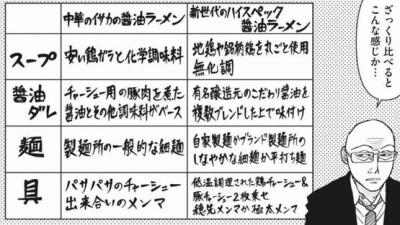 ざっくり比べると
こんな感じか…
中華のイサカの醤油ラーメン
新世代のハイスペック
醤油ラーメン
スープ
安い鶏ガラと化学調味料
地鶏や銘柄鶏を丸ごと使用
無化調
醤油
ダレ
チャーシュー用の豚肉を煮た
醤油とその他調味料がベース
有名醸造元のこだわり醤油を
複数ブレンドした上で味付け
麺
製麺所の一般的な細麺
自家製麺かブランド製麺所の
しなやかな細麺か平打ち麺
具
パサパサのチャーシュー
出来合いのメンマ
低温調理された鶏チャーシュー&
豚チャーシュー2枚乗せ
穂先メンマか極太メンマ